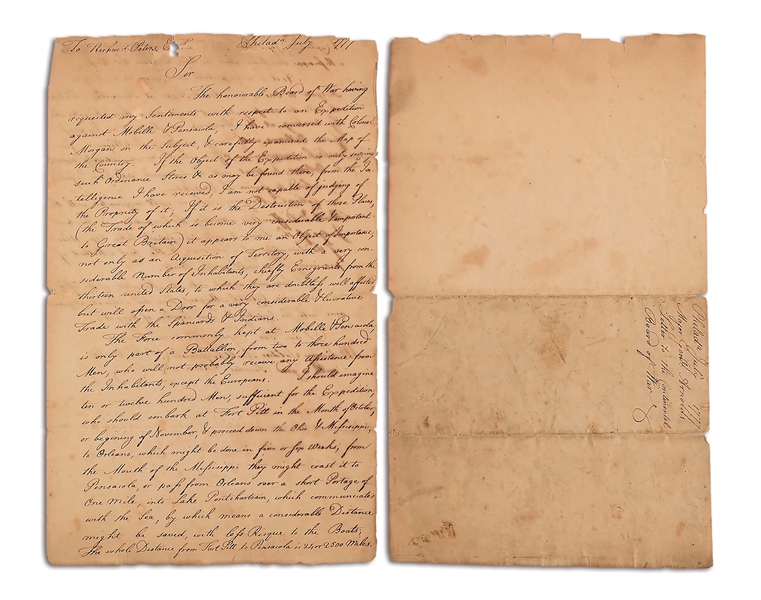 To Richard Peters Esq Philada July 1777
Sir
The honourable Board of War having
requested my Sentiments with respect to an Expedition
against Mobille & Pensacola, I have conversed with Colonel
Morgan on the Subject, & carefully examined the Map of
the Country. If the Object of the Expedition is only seizing
such Ordinance Stores &c as may be found there, from the In-
telligence I have received, I am not capable of judging of
the Propriety of it, If it is the Destruction of those Places,
(the Trade of which is become very considerable & important
to Great Britain) it appears to me an Object of Importance,
not only as an Acquisition of Territory, with a very con-
siderable Number of Inhabitants, chiefly Emigrants from the
thirteen united States, to which they are doubtless well affected
but will open a Door for a very considerable & lucrative
Trade with the Spaniards & Indians.
The Force commonly kept at Mobille & Pensacola
is only part of a Battallion, from two to three hundred
Men, who will not probably receive any Assistance from
the Inhabitants, except the Europeans. I should imagine
ten or twelve hundred Men, sufficient for the Expedition,
who should embark at Fort Pitt in the Month of October,
or begining of November, & proceed down the Ohio & Missisippi,
to Orleans, which might be done in five or six Weaks; from
the Mouth of the Missisippi they might coast it to
Pensacola, or pass from Orleans over a short Portage of
One Mile, into Lake Pontchartrain, which communicates
with the Sea, by which means a considerable Distance
might be saved, with less Risque to the Boats,
The whole Distance from Fort Pitt to Pensacola is 24 or 2500 Miles.
Philada July 1777
Major Genll Arnolds
Letter to the Continental
Board of War